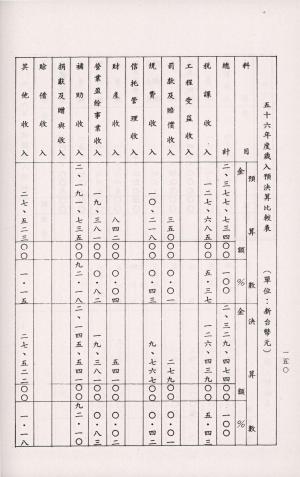 一五〇
五十六年度歲入預決算比較表 (單位:新台幣元)
科目 預算數 金額 % 決算數 金額 %
總計 二、三七七、七三四〇〇 一〇〇 二、三二九、七七四〇〇 一〇〇
稅課收入 一二七、六八五〇〇 五·三七 一二六、四三九〇〇 五·四三
工程受益收入
罰款及賠償收入 三五〇〇〇 〇·〇一 二七九〇〇 〇·〇一
規費收入 一〇、二一八〇〇 〇·四三 九、七六七〇〇 〇·四二
信托管理收入
財產收入 八四二〇〇 〇·〇四 五四一〇〇 〇·〇二
營業盈餘事業收入 一九、三八一〇〇 〇·八二 一九、三八一〇〇 〇·八三
補助收入 二、一九一、七三五〇〇 九二·一八 二、一四五、五四一〇〇 九二·一〇
捐獻及贈與收入
賒借收入
其他收入 二七、五二三〇〇 一·一五 二七、五二二〇〇 一·一八